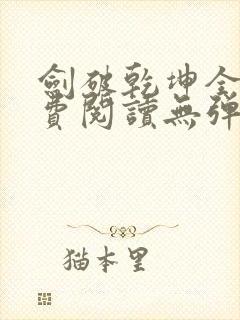 劍破乾坤全
費閱讀無彈
猫本里